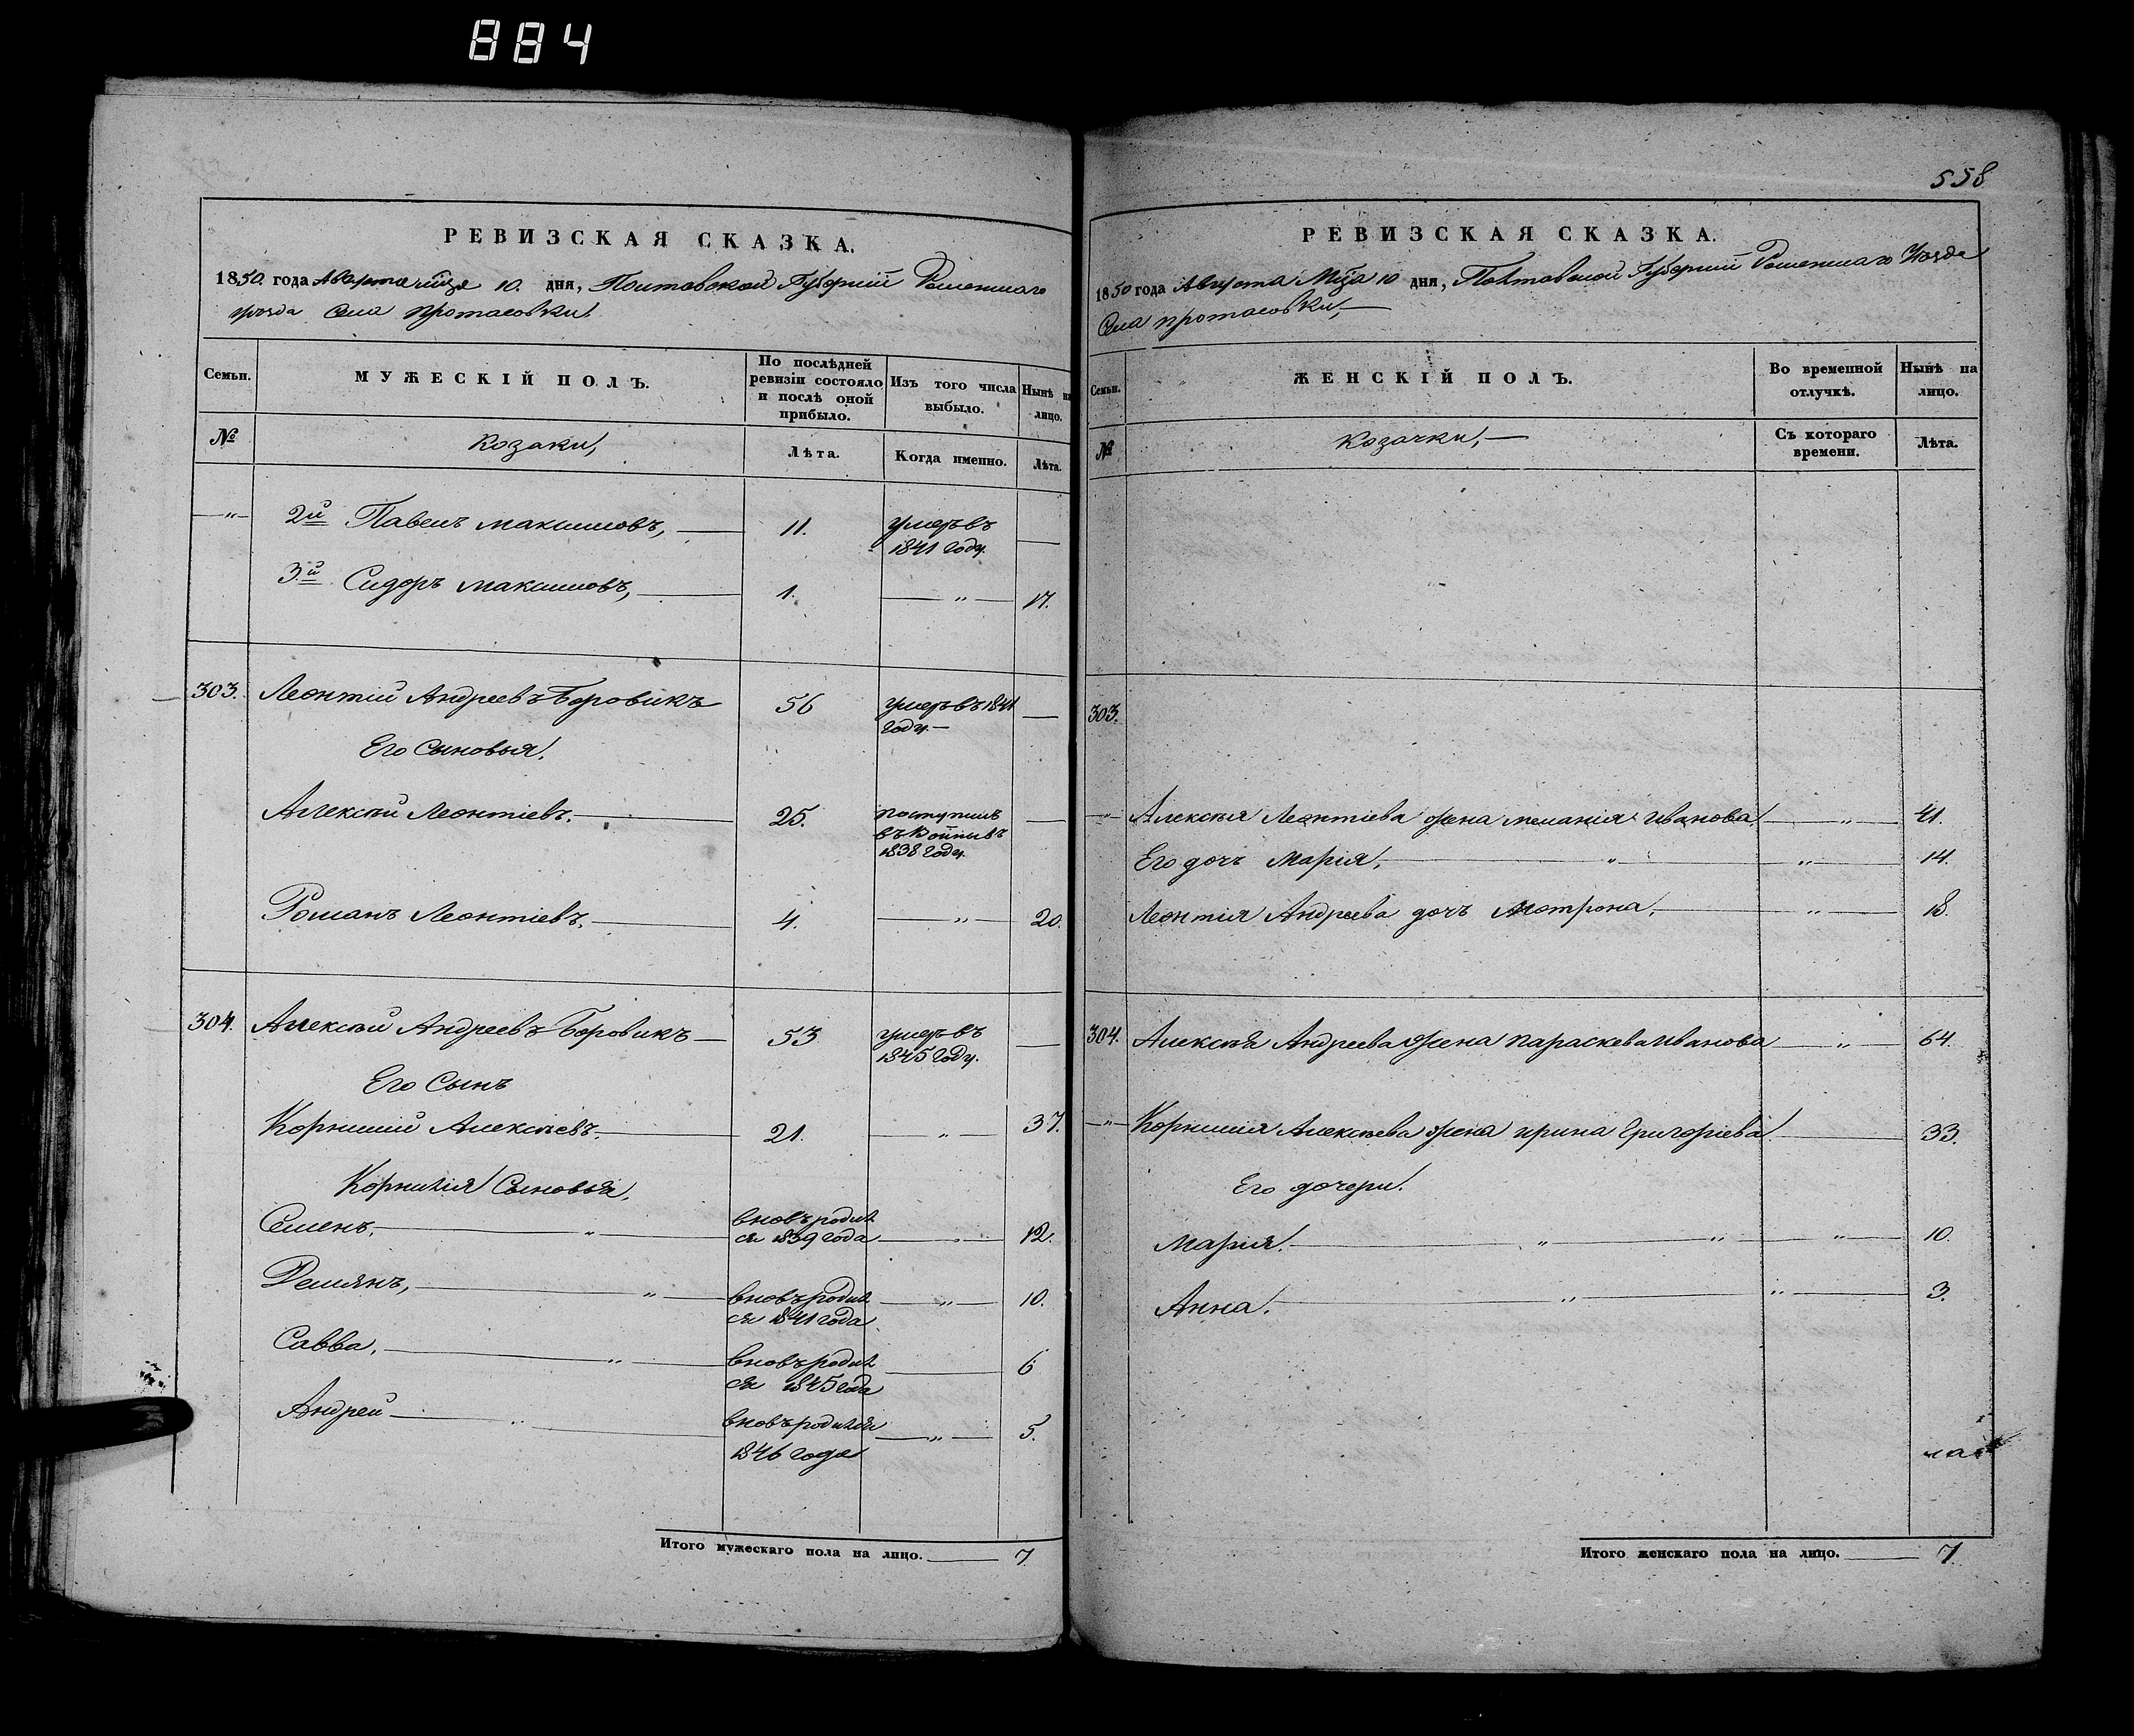 884
РЕВИЗСКАЯ СКАЗКА.
1850. года Августа мѣсяца 10. дня, Полтавской Губерніи Роменскаго
уѣзда Села Протасовки.
Семьи.
МУЖЕСКІЙ ПОЛЪ.
По послѣдней ревизіи состояло и послѣ оной прибыло.
Изъ того числа выбыло.
Нынѣ на лицо.
№
Козаки,
Лѣта.
Когда именно.
Лѣта.
2й Павелъ Максимовъ, 11. умеръ въ 1841 году.
3.й Сидоръ Максимовъ, 1. " 17.
303. Леонтій Андреевъ Боровикъ 56 умеръ въ 1841 году.
Его Сыновья.
Алексѣй Леонтіевъ. 25. поступилъ 1838 году.
Романъ Леонтіевъ. 4. " 20.
304. Алексѣй Андреевъ Боровикъ 53 умеръ въ 1845 году.
Его Сынъ
Корнилій Алексѣевъ. 21. " 37.
Корнилія Сыновья,
Семенъ. " вновь родил ся 1839 года 12.
Демянъ, " вновь родил ся 1841 года " 10.
Савва, " вновь родил ся 1845 года 6
Андрей " вновь родился 1846 года " 5.
Итого мужескаго пола на лицо. 7
558
РЕВИЗСКАЯ СКАЗКА.
1850 года Августа Мца 10 дня, Полтавской Губерніи Роменскаго Уѣзда
Села Протасовки,
Семьи.
ЖЕНСКІЙ ПОЛЪ.
Во временной отлучкѣ.
Нынѣ на лицо.
№
Козачки,
Съ котораго времени.
Лѣта.
303.
" Алексѣя Леонтіева жена Меланія Иванова " 41.
Его дочь Марія, " " 14.
Леонтія Андреева дочь Мотрона, " 18.
304. Алексѣя Андреева жена Параскева Иванова " 64.
" Корнилія Алексѣева жена Ирина Григоріева 33.
Его дочери.
Марія. " " " 10.
Анна. " " 3.
Итого женскаго пола на лицо. 7